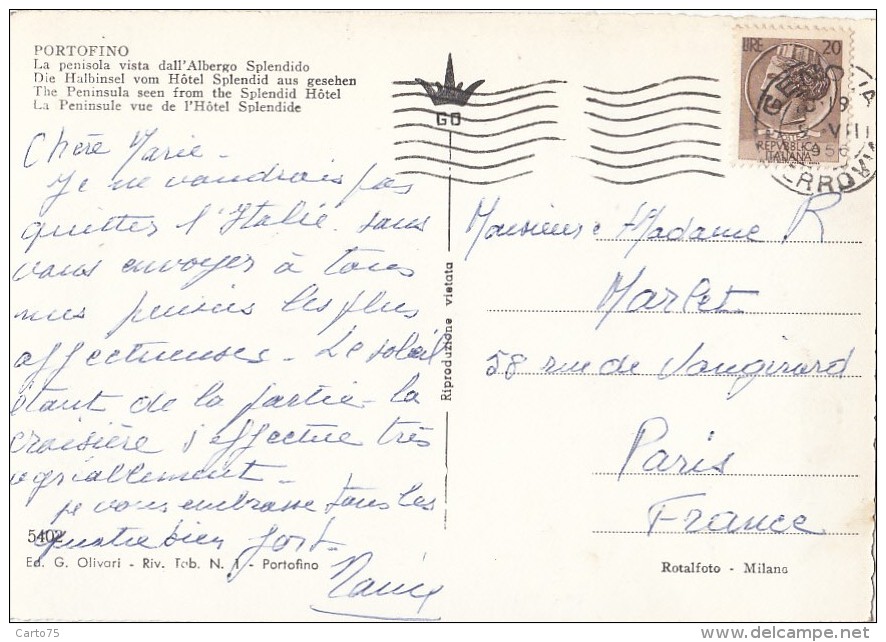 PORTOFINO
La penisola vista dall'Albergo Splendido
Die Halbinsel vom Hôtel Splendid aus gesehen
The Peninsula seen from the Splendid Hôtel
La Peninsule vue de l'Hôtel Splendide
Chère Marie -
Je ne voudrais pas
quitter l'Italie sans
vous envoyer à tous
mes pensées les plus
affectueuses - Le soleil
étant de la partie - la
croisière s'effectue très
agréablement -
je vous embrasse tous les
quatre bien fort -
5402
Ed. G. Olivari - Riv. Tab. N. 1 - Portofino
Riproduzione vietata
GO
LIRE 20
REPVBBLICA
ITALIANA
1956
Monsieur Madame R
Marlet
58 rue de Vaugirard
Paris
France
Rotalfoto - Milano
Carto75
www.delcampe.net